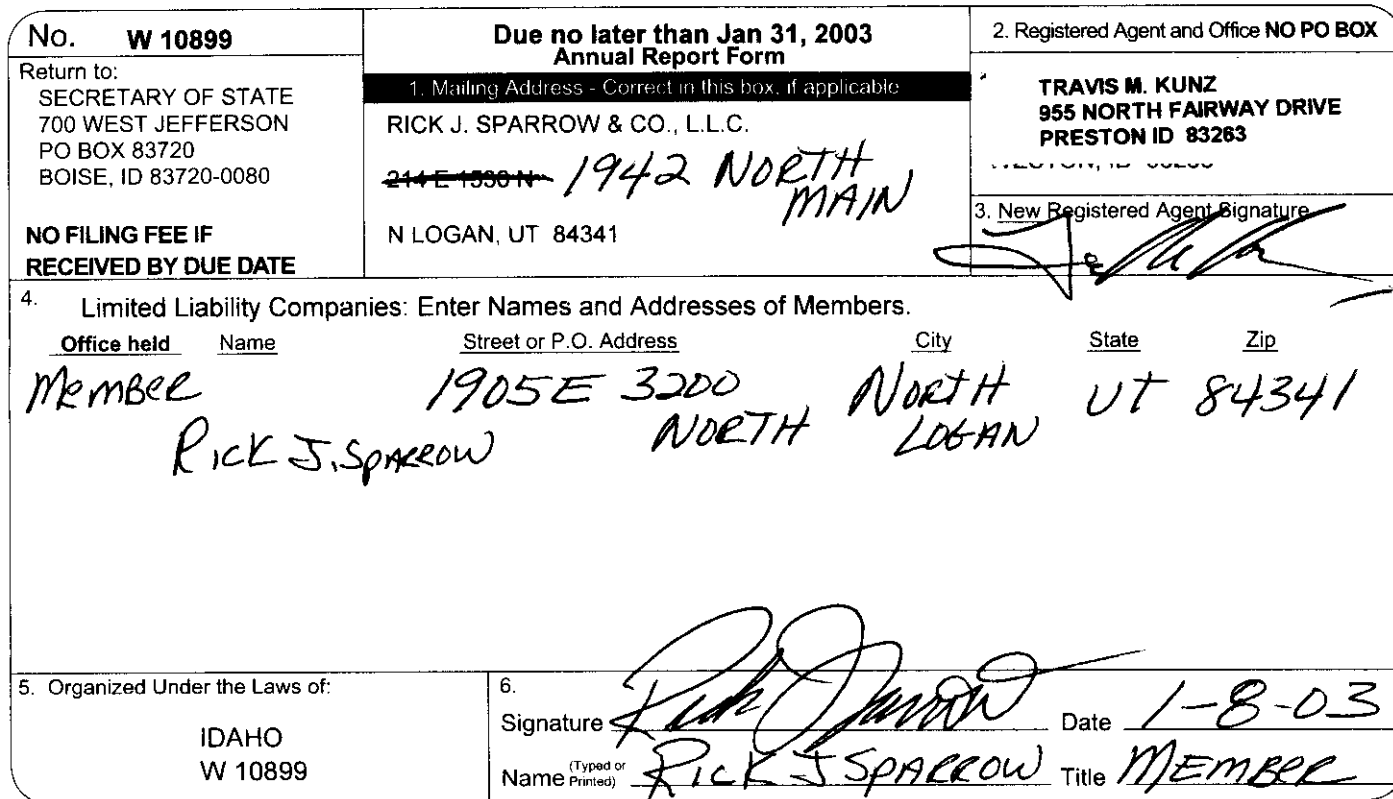 No. W 10899
Return to:
SECRETARY OF STATE
700 WEST JEFFERSON
PO BOX 83720
BOISE, ID 83720-0080
NO FILING FEE IF
RECEIVED BY DUE DATE
Due no later than Jan 31, 2003
Annual Report Form
1. Mailing Address - Correct in this box, if applicable
RICK J. SPARROW & CO., L.L.C.
214 E 1530 N 1942 NORTH
MAIN
N LOGAN, UT 84341
2. Registered Agent and Office NO PO BOX
TRAVIS M. KUNZ
955 NORTH FAIRWAY DRIVE
PRESTON ID 83263
3. New Registered Agent Signature
4. Limited Liability Companies: Enter Names and Addresses of Members.
Office held Name Street or P.O. Address City State Zip
MEMBER 1905 E 3200 NORTH UT 84341
RICK J. SPARROW NORTH LOGAN
5. Organized Under the Laws of:
IDAHO
W 10899
6.
Signature Rick J Sparrow Date 1-8-03
Name (Typed or Printed) RICK J SPARROW Title MEMBER